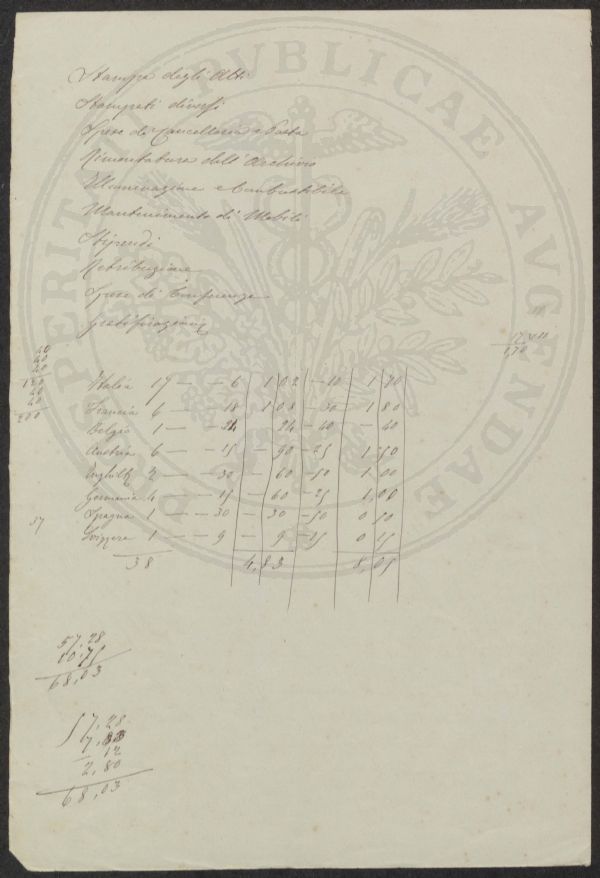 PROSPERITATI PVBLICAE AVGENDAE
Stampa degli Atti
Stampati diversi
Spese di Cancelleria e Posta
dell'Archivio
Illuminazione e Combustibile
Mantenimento di Mobili
Stipendi
Retribuzione
Spese di Conferenze
Gratificazioni
17
1,70
40
40
40
120
40
40
200
Italia 17 — — 6 1 02 — 10 1 70
Francia 6 — — 18 1 08 — 30 1 80
Belgio 1 — — 24 24 — 40 — 40
Austria 6 — — 15 — 90 — 25 1 50
Inghilt 2 — — 30 — 60 — 50 1 00
Germania 4 — — 15 — 60 — 25 1,00
57
Spagna 1 — — 30 — 30 — 50 0 50
Svizzera 1 — — 9 — 9 — 15 0 15
38 4,83 8,05
57,28
10,75
68,03
57,28
12
2,80
68,03